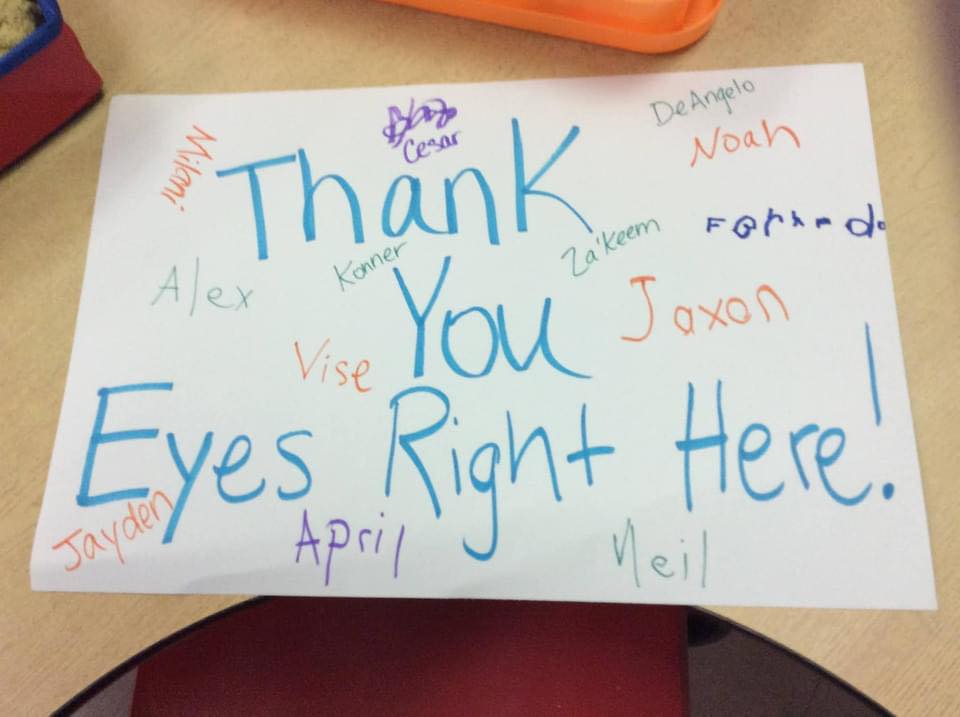 DeAngelo
Cesar
Noah
Milani
Thank
Za'Keem
Konner
Alex
You
Jaxon
Vise
Eyes Right Here!
Jayden
April
Neil